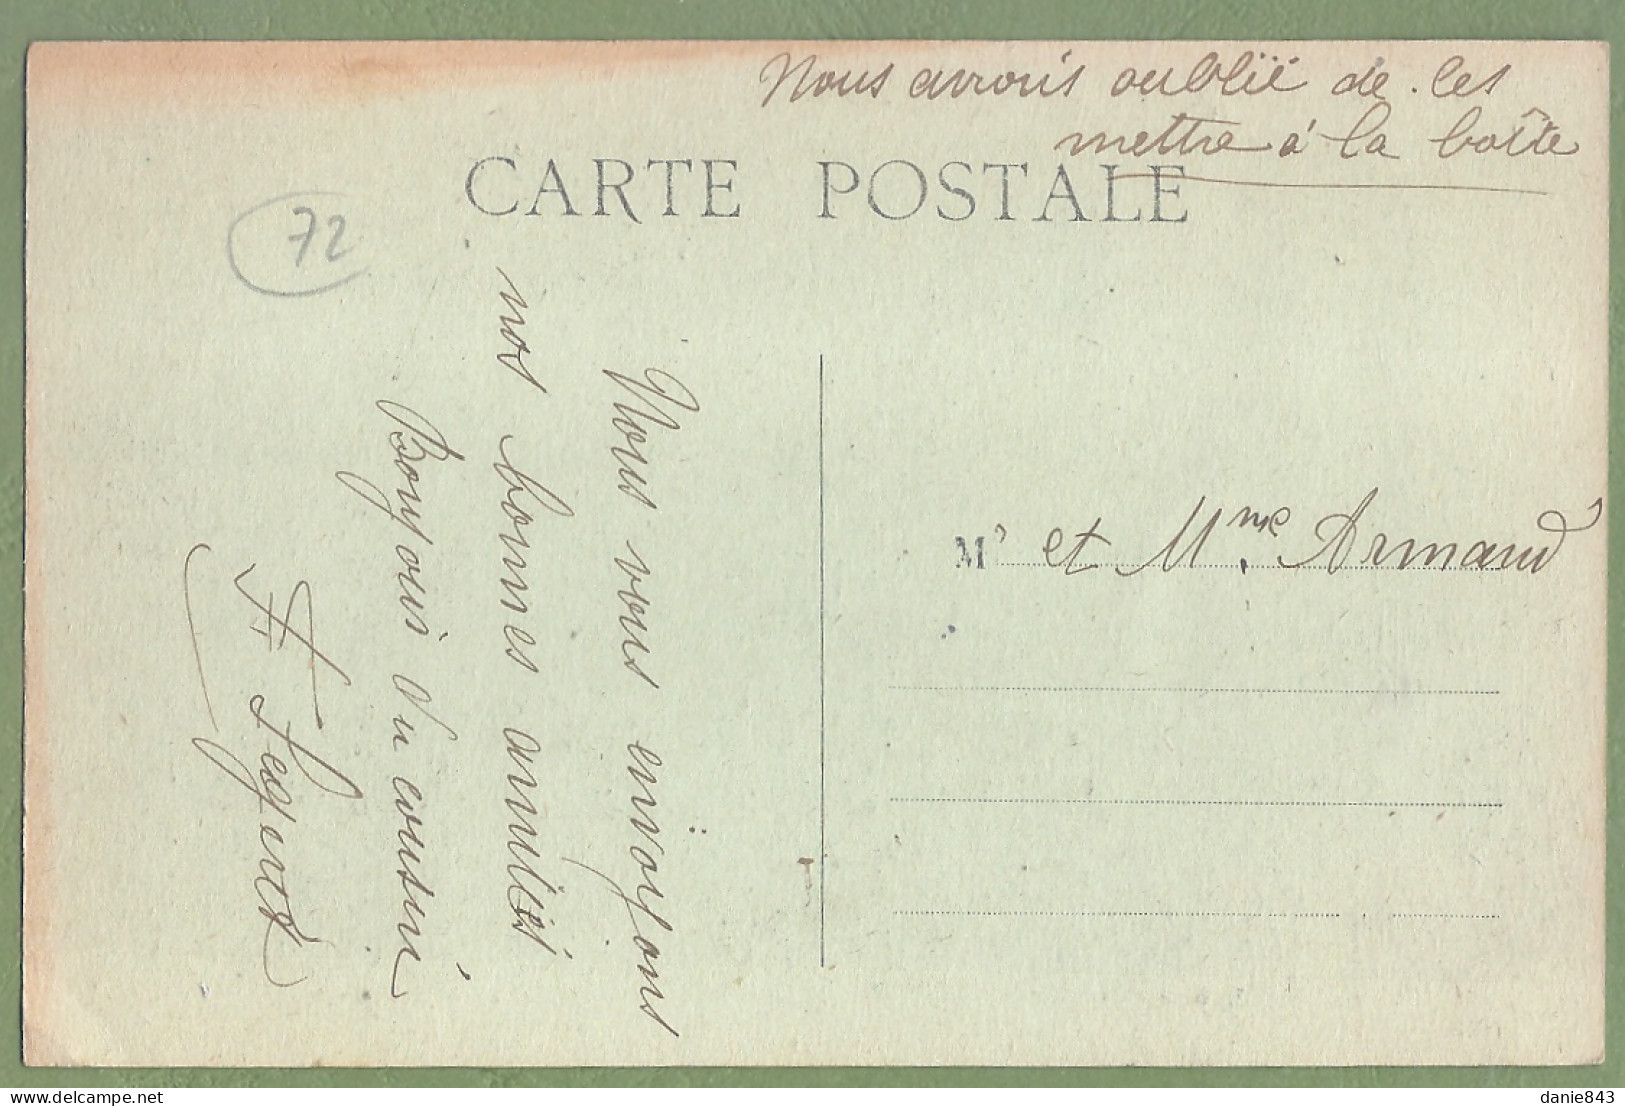 Nous avons oublïé de les
mettre à la boîte
CARTE POSTALE
72
Nous vous envoÿons
nos bonnes amitiés
Bonjour du cousin
M^r et M^me. Armand
danie843